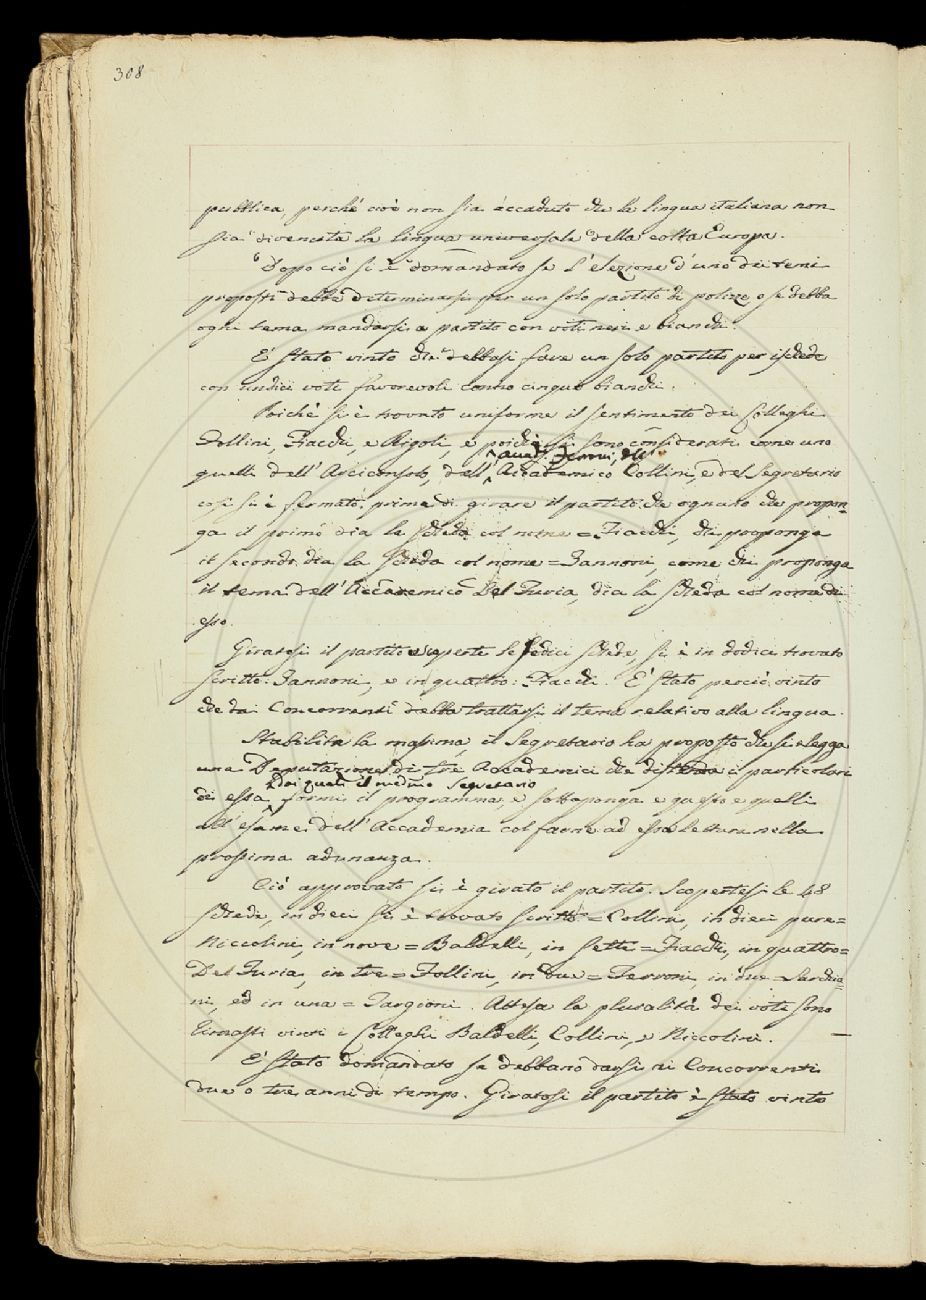 308
pubblica, perchè cioè non sia accaduto che la lingua italiana non
sia divenuta la lingua universale della colta Europa.
Dopo ciò si è domandato se l'elezione d'uno dei temi
proposti debba determinarsi per un solo partito di polizze, o se debba
ogni tema mandarsi a partito con voti neri e bianchi.
E' stato vinto che debbasi fare un solo partito per ischede
con undici voti favorevoli contro cinque bianchi.
Poichè si è trovato uniforme il sentimento dei Colleghi
Follini, Fiacchi, e Rigoli, e poichè si sono considerati come uno
quelli dell'Arciconsolo, dell' Accademico Collini, e del Segretario
così si è fermato, prima di girare il partito, che ognuno che propon-
ga il primo dia la scheda col nome = Fiacchi, chi proponga
il secondo, dia la scheda col nome = Zannoni, come chi proponga
il tema dell'Accademico Del Furia, dia la scheda col nome di
esso.
Giratosi il partito e aperte le sedici schede si è in dodici trovato
scritto: Zannoni, e in quattro: Fiacchi. E' stato perciò vinto
che dai Concorrenti debba trattarsi il tema relativo alla lingua.
Stabilita la massima, il Segretario ha proposto che si elegga
una Deputazione di tre Accademici che distenda i particolari
dei quali il medesimo Segretario
di essa, formi il programma, e sottoponga e questo e quelli
all'esame dell'Accademia col farne ad essa lettura nella
prossima adunanza.
Ciò approvato si è girato il partito. Scopertesi le 48
schede, in dieci si è trovato scritto = Collini, in dieci pure =
Niccolini, in nove = Baldelli, in sette = Fiacchi, in quattro =
Del Furia, in tre = Follini, in due = Ferroni, in due = Sarchia=
ni, ed in una = Targioni. Attesa la pluralità dei voti sono
rimasti vinti i Colleghi Baldelli, Collini, e Niccolini.
E' stato domandato se debbano darsi ai Concorrenti
due o tre anni di tempo. Giratosi il partito è stato vinto